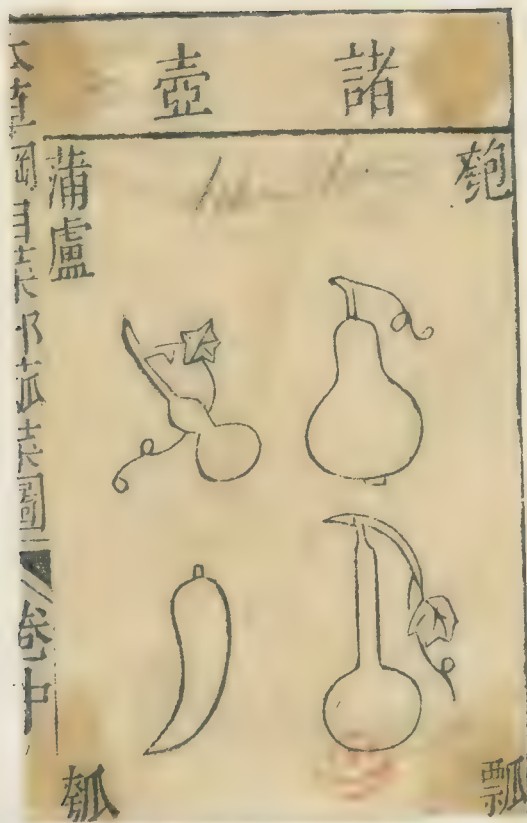 諸壺
匏
瓢
蒲盧
瓠
本草綱目菜部蓏菜圖 卷中